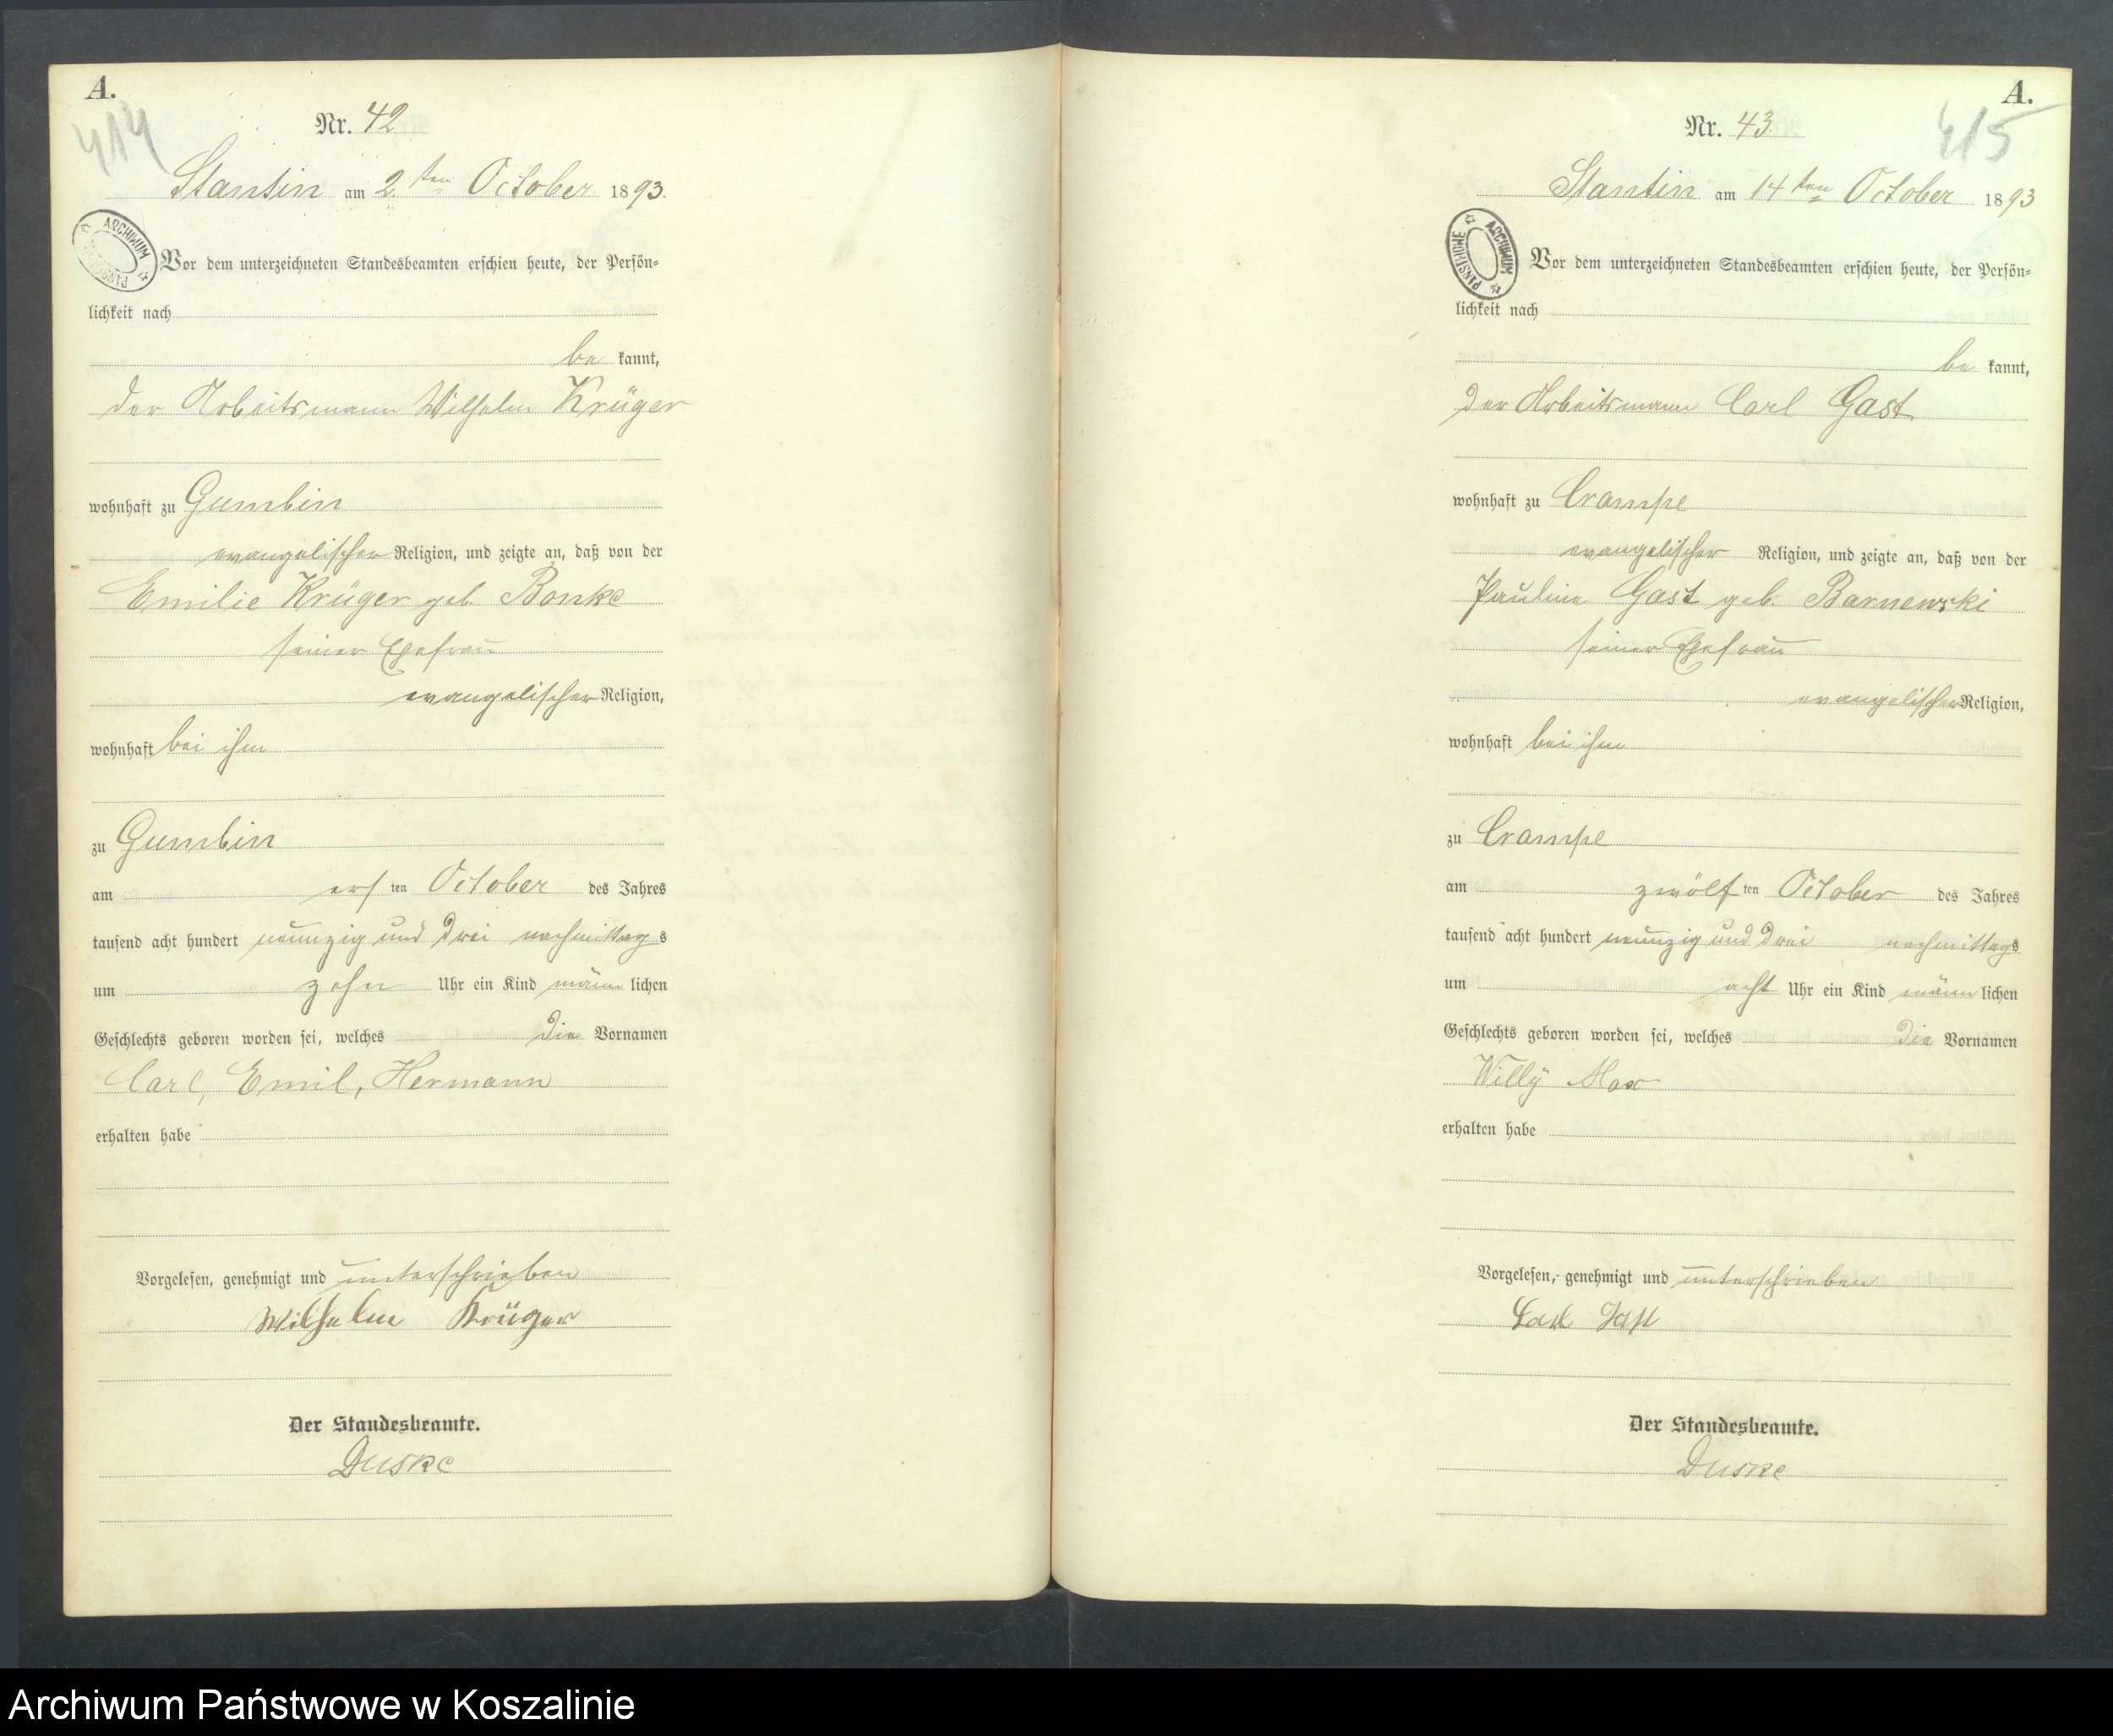 A.
414
Nr. 42
Stantin am 2ten October 1893.
ARCHIWUM PAŃSTWOWE
Vor dem unterzeichneten Standesbeamten erschien heute, der Persön-
lichkeit nach
be kannt,
der Arbeitsmann Wilhelm Krüger
wohnhaft zu Gumbin
evangelischer Religion, und zeigte an, daß von der
Emilie Krüger geb. Bonke
seiner Ehefrau
evangelischer Religion,
wohnhaft bei ihm
zu Gumbin
am ersten October des Jahres
tausend acht hundert neunzig und drei nachmittags
um zehn Uhr ein Kind männlichen
Geschlechts geboren worden sei, welches die Vornamen
Carl, Emil, Hermann
erhalten habe
Vorgelesen, genehmigt und unterschrieben
Wilhelm Krüger
Der Standesbeamte.
Duske
A.
415
Nr. 43
Stantin am 14ten October 1893
ARCHIWUM PAŃSTWOWE
Vor dem unterzeichneten Standesbeamten erschien heute, der Persön-
lichkeit nach
be kannt,
der Arbeitsmann Carl Gast
wohnhaft zu Crampe
evangelischer Religion, und zeigte an, daß von der
Pauline Gast geb. Barnewski
seiner Ehefrau
evangelischer Religion,
wohnhaft bei ihm
zu Crampe
am zwölften October des Jahres
tausend acht hundert neunzig und drei nachmittags
um acht Uhr ein Kind männlichen
Geschlechts geboren worden sei, welches die Vornamen
Willÿ Max
erhalten habe
Vorgelesen, genehmigt und unterschrieben
Carl Gast
Der Standesbeamte.
Duske
Archiwum Państwowe w Koszalinie